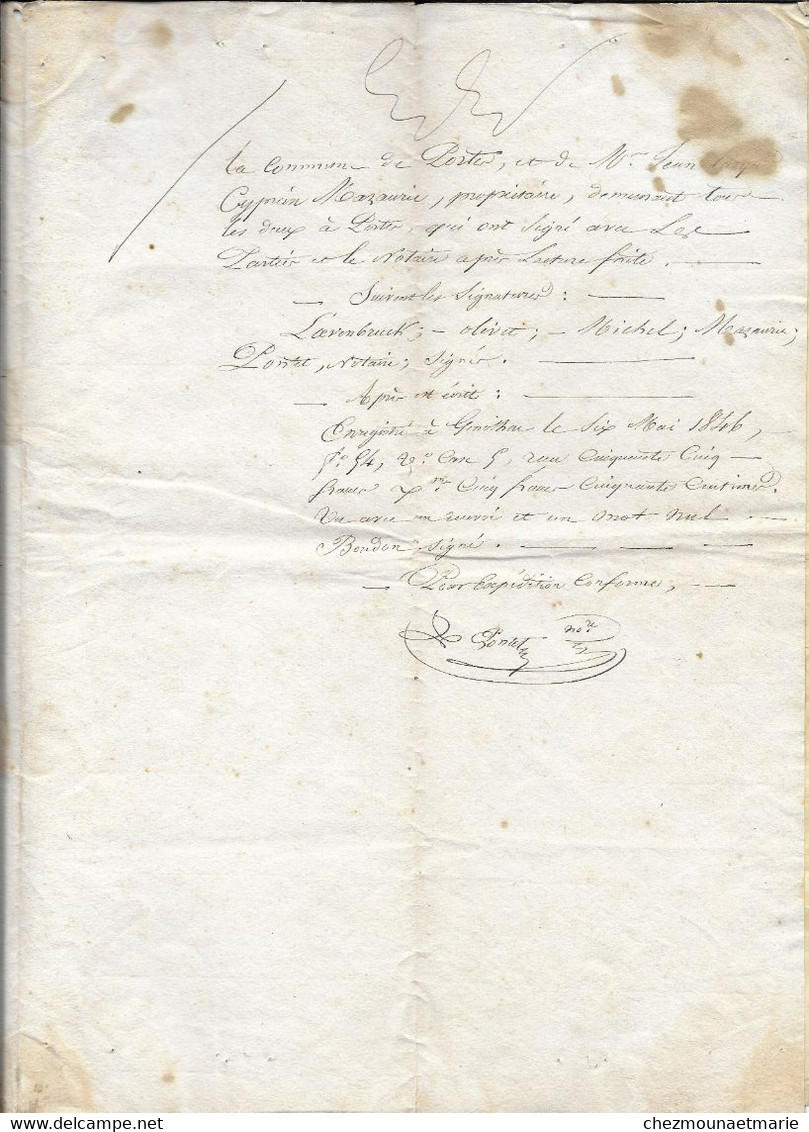 la Commune de Portes, et de Mr. Jean
Cyprien Mazaurie, propriétaire, demeurant tous
les deux à Portes, qui ont signé avec Les
Parties et le Notaire après Lecture faite. —
— Suivent les Signatures : —
Lœvenbruck; - olivet; - Michel; Mazauric;
Pontet, Notaire; Signés. —
— Après est écrit : —
Enregistré à Genolhac le Six Mai 1846, -
fo. 54, vo. Case 5, reçu Cinquante Cinq —
francs Xme Cinq francs Cinquante Centimes.
Vu avec un renvoi et un mot nul —
Boudon, signé. — — — —
— Pour Expédition Conforme, —
Pontet nore
www.delcampe.net
chezmounaetmarie